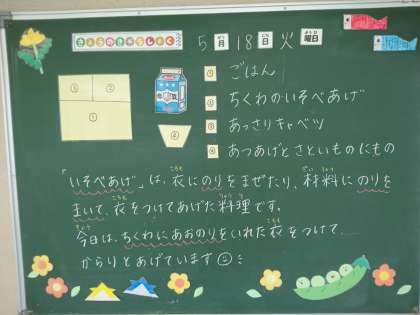 きょうのきゅうしょく
5月18日火曜日
① ごはん
② ちくわのいそべあげ
③ あっさりキャベツ
④ あつあげとさといものにもの
③ ②
①
④
「いそべあげ」は、衣にのりをまぜたり、材料にのりを
まいて、衣をつけてあげた料理です。
今日は、ちくわにあおのりをいれた衣をつけて
からりとあげています